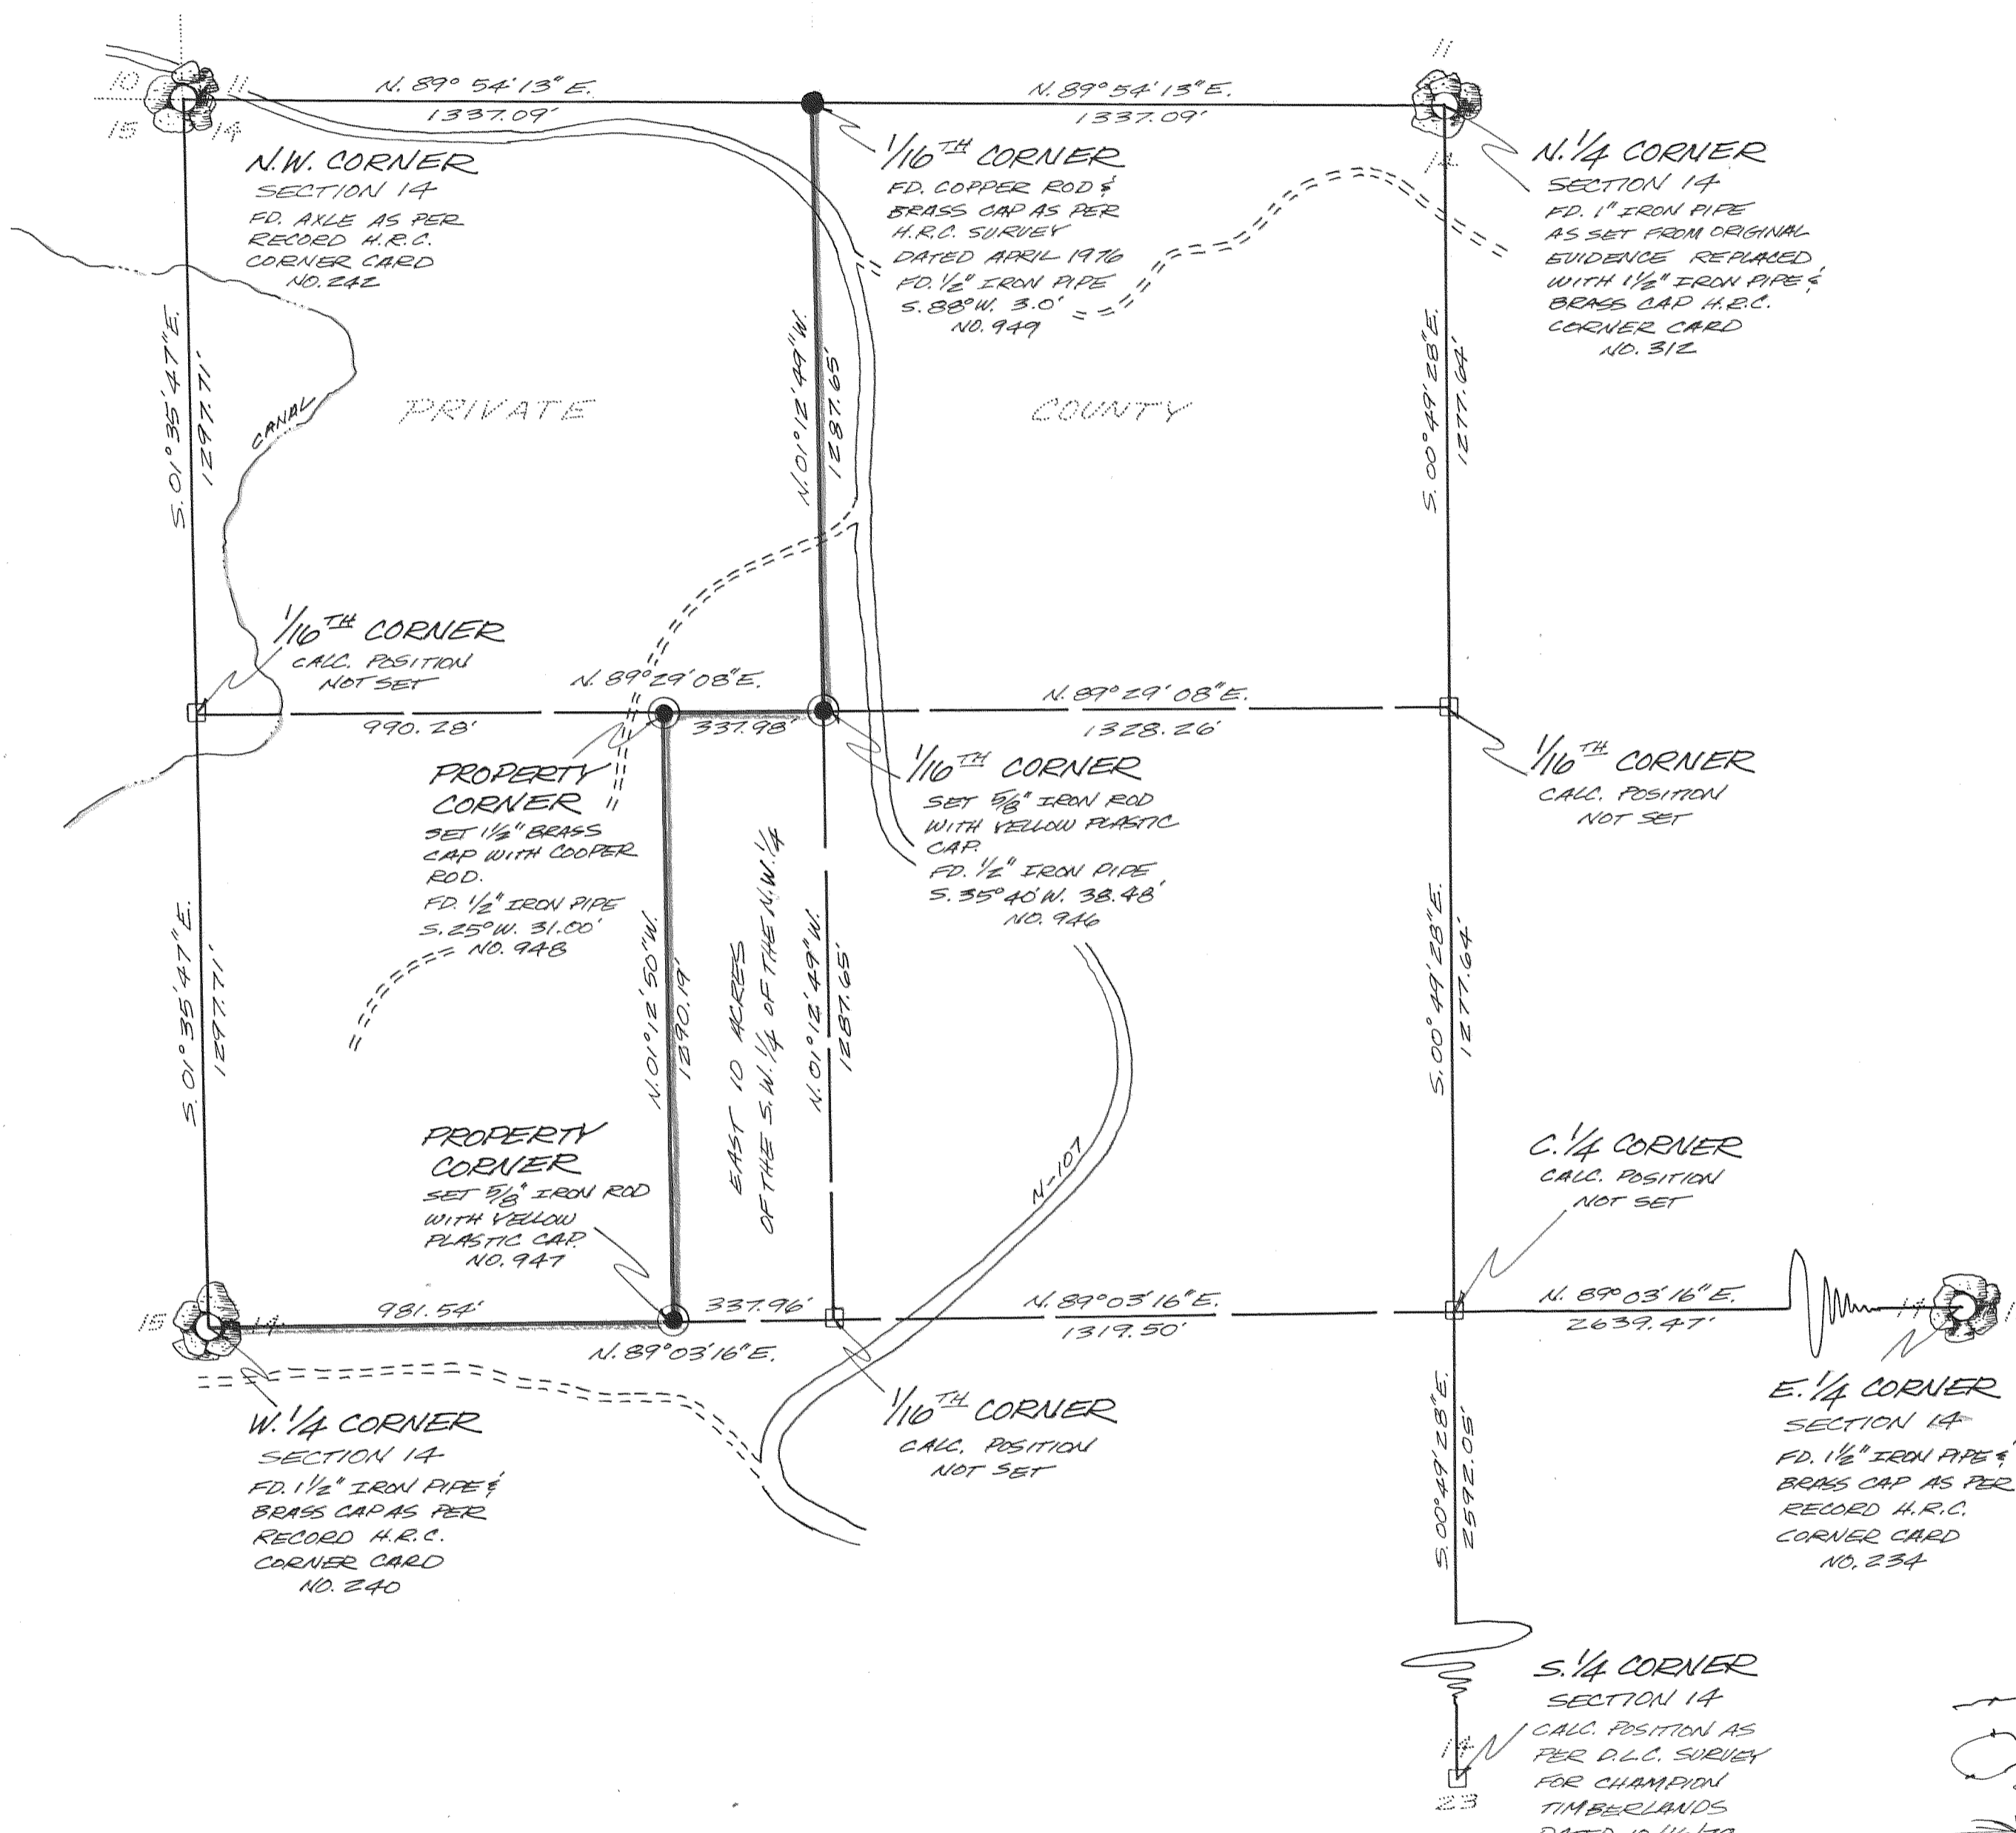 10
11
15
14
N. 89° 54' 13" E.
1337.09'
N. 89° 54' 13" E.
1337.09'
11
14
N.W. CORNER
SECTION 14
FD. AXLE AS PER
RECORD H.R.C.
CORNER CARD
NO. 242
1/16TH CORNER
FD. COPPER ROD &
BRASS CAP AS PER
H.R.C. SURVEY
DATED APRIL 1976
FD. 1/2" IRON PIPE
S. 88° W. 3.0'
NO. 949
N. 1/4 CORNER
SECTION 14
FD. 1" IRON PIPE
AS SET FROM ORIGINAL
EVIDENCE REPLACED
WITH 1 1/2" IRON PIPE &
BRASS CAP H.R.C.
CORNER CARD
NO. 312
S. 01° 35' 47" E.
1297.71'
CANAL
PRIVATE
N. 01° 12' 49" W.
1287.65'
COUNTY
S. 00° 49' 28" E.
1277.64'
1/16TH CORNER
CALC. POSITION
NOT SET
N. 89° 29' 08" E.
990.28'
337.98'
N. 89° 29' 08" E.
1328.26'
PROPERTY
CORNER
SET 1 1/2" BRASS
CAP WITH COOPER
ROD.
FD. 1/2" IRON PIPE
S. 25° W. 31.00'
NO. 948
1/16TH CORNER
SET 5/8" IRON ROD
WITH YELLOW PLASTIC
CAP.
FD. 1/2" IRON PIPE
S. 35° 40' W. 38.48'
NO. 946
1/16TH CORNER
CALC. POSITION
NOT SET
S. 01° 35' 47" E.
1297.71'
N. 01° 12' 50" W.
1290.19'
EAST 10 ACRES
OF THE S.W. 1/4 OF THE N.W. 1/4
N. 01° 12' 49" W.
1287.65'
S. 00° 49' 28" E.
1277.64'
PROPERTY
CORNER
SET 5/8" IRON ROD
WITH YELLOW
PLASTIC CAP.
NO. 947
N-107
C. 1/4 CORNER
CALC. POSITION
NOT SET
15
14
981.54'
337.96'
N. 89° 03' 16" E.
N. 89° 03' 16" E.
1319.50'
N. 89° 03' 16" E.
2639.47'
14
W. 1/4 CORNER
SECTION 14
FD. 1 1/2" IRON PIPE &
BRASS CAP AS PER
RECORD H.R.C.
CORNER CARD
NO. 240
1/16TH CORNER
CALC. POSITION
NOT SET
S. 00° 49' 28" E.
2592.05'
E. 1/4 CORNER
SECTION 14
FD. 1 1/2" IRON PIPE &
BRASS CAP AS PER
RECORD H.R.C.
CORNER CARD
NO. 234
S. 1/4 CORNER
SECTION 14
CALC. POSITION AS
PER D.L.C. SURVEY
FOR CHAMPION
TIMBERLANDS
14
23